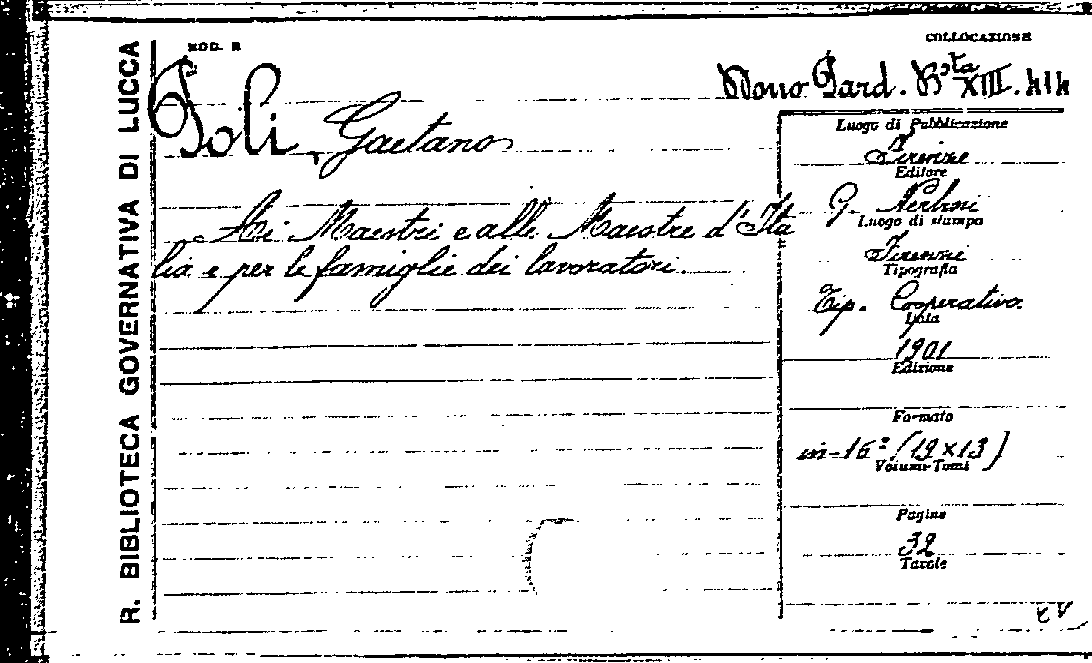 R. BIBLIOTECA GOVERNATIVA DI LUCCA
MOD. B
COLLOCAZIONE
Dono Pard. Bsta XIII. 414
Poli, Gaetano
Ai Maestri e alle Maestre d'Ita
lia e per le famiglie dei lavoratori.
Luogo di Pubblicazione
Firenze
Editore
G. Nerbini
Luogo di stampa
Firenze
Tipografia
Tip. Cooperativa
Data
1901
Edizione
Formato
in-16º (19x13)
Volumi-Tomi
Pagine
32
Tavole